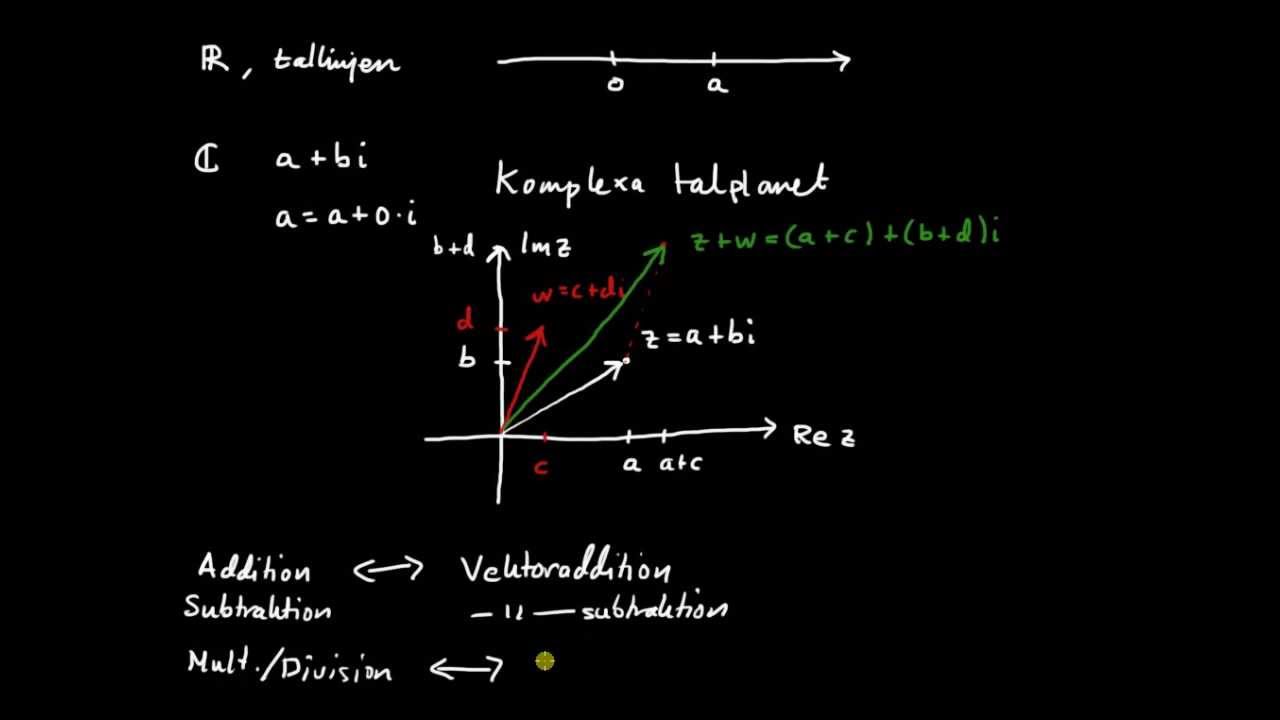 ℝ, tallinjen
0 a
ℂ a+bi
a=a+0·i
Komplexa talplanet
b+d Im z
z+w=(a+c)+(b+d)i
w=c+di
d
z=a+bi
b
Re z
c a a+c
Addition ⟷ Vektoraddition
Subtraktion —〃— subtraktion
Mult./Division ⟷